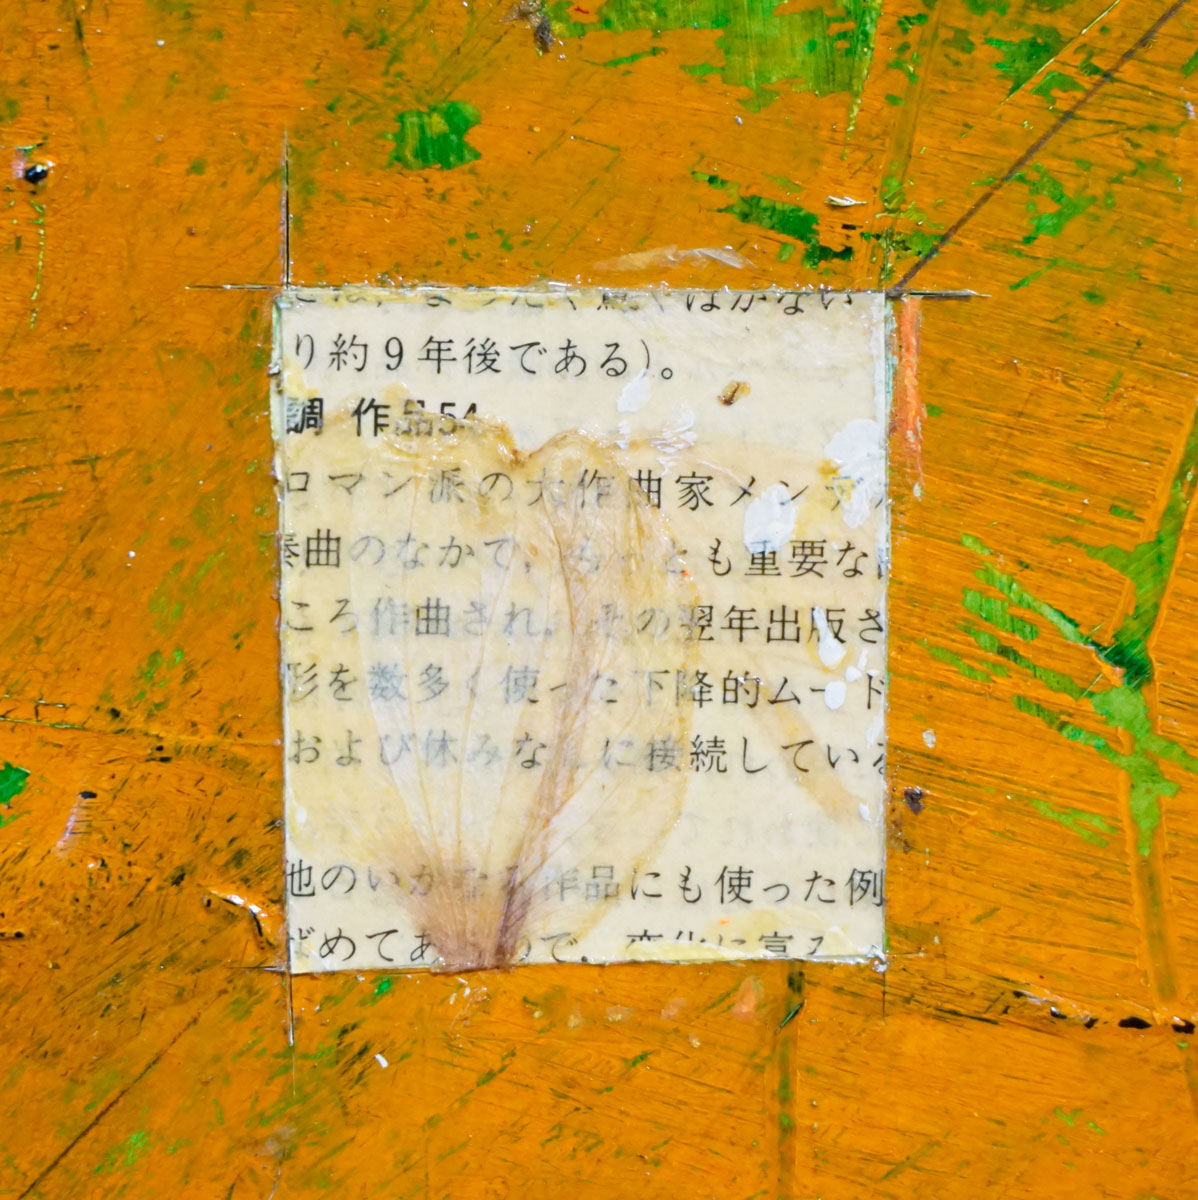 まったく驚くはがない
り約9年後である)。
調 作品54
ロマン派の大作曲家メンデ
奏曲のなかで,もっとも重要な
ころ作曲され,その翌年出版さ
形を数多く使った下降的ムード
および休みなしに接続している
他のいかなる作品にも使った例
ばめてあるので,変化に富み